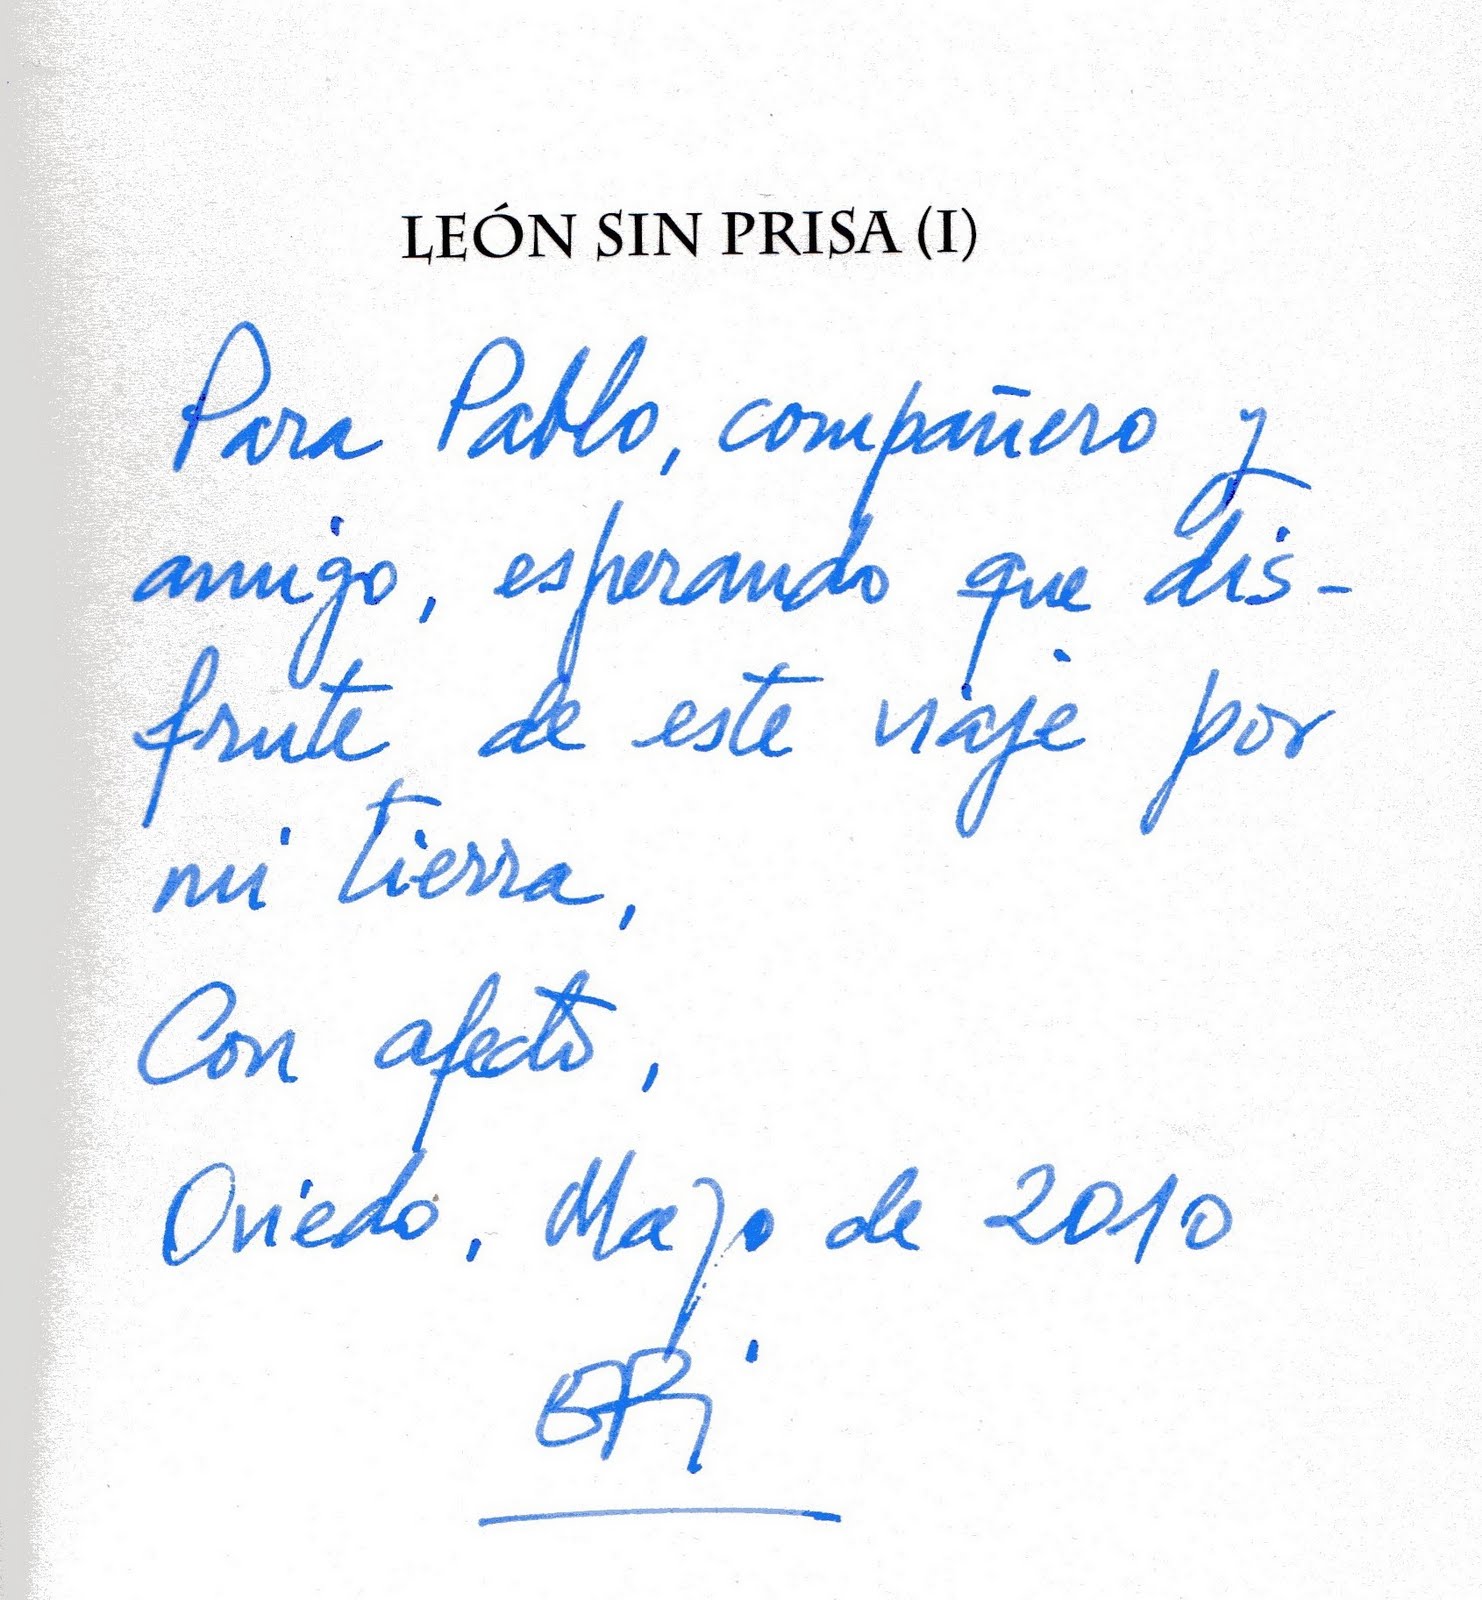 LEÓN SIN PRISA (I)
Para Pablo, compañero y
amigo, esperando que dis-
frute de este viaje por
mi tierra,
Con afecto,
Oviedo, Mayo de 2010
EPi